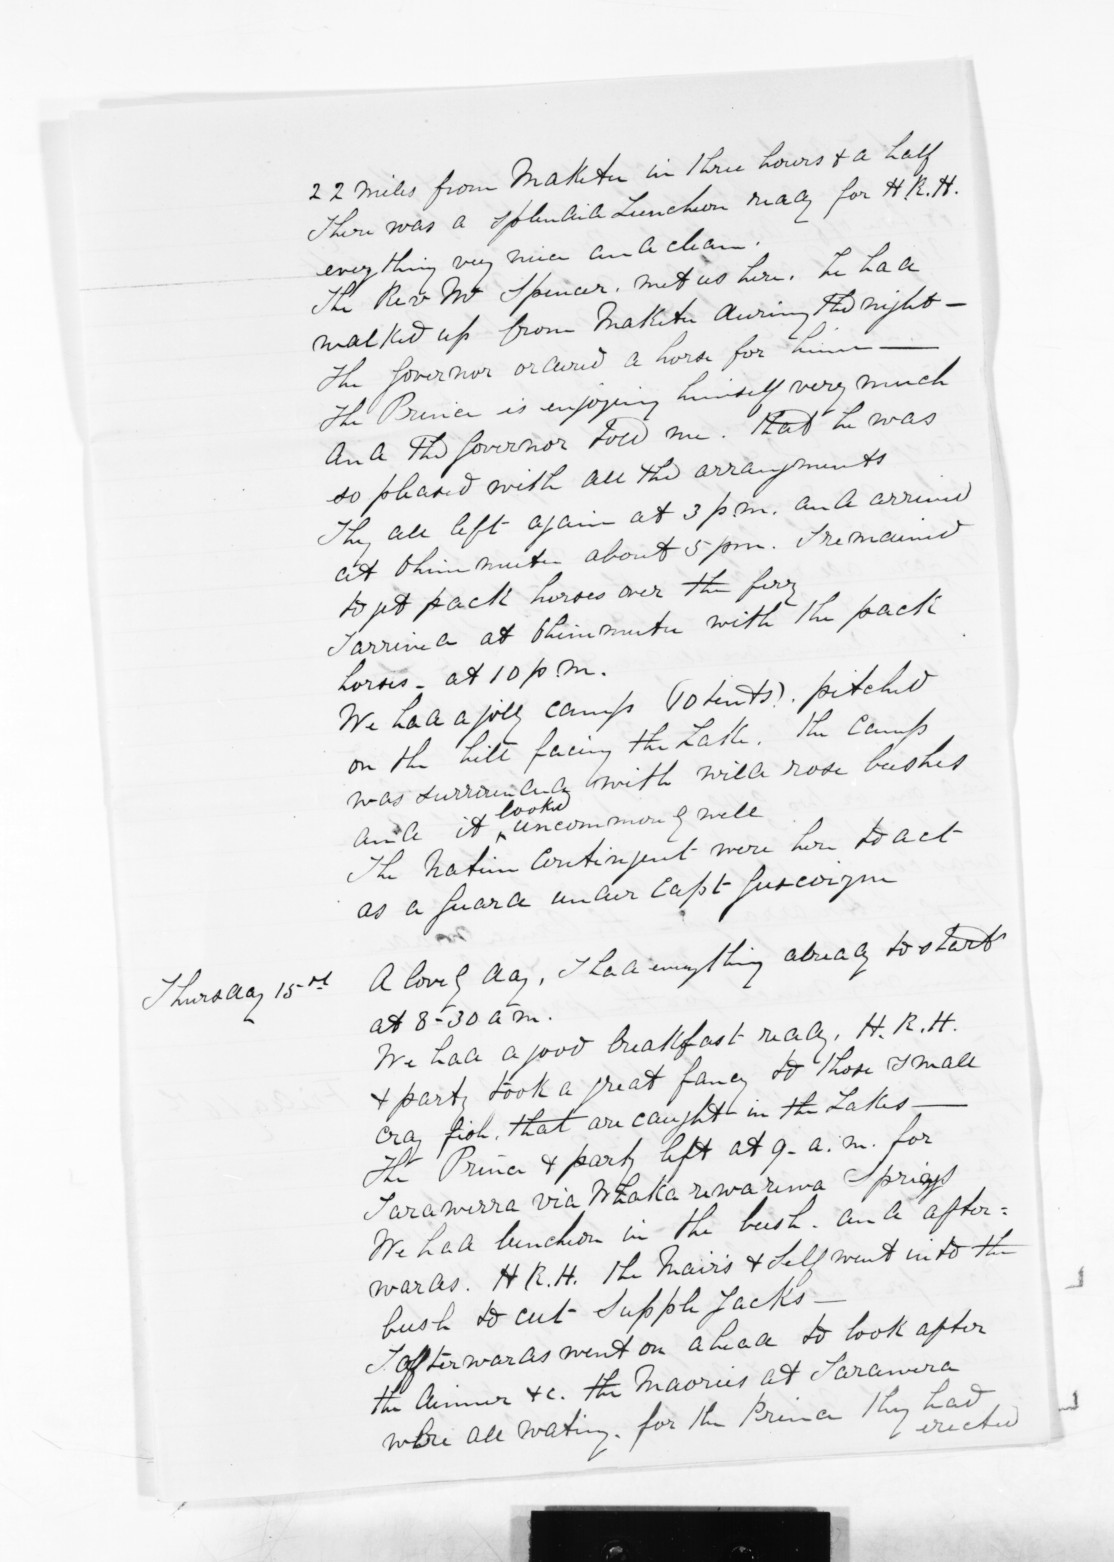 22 miles from Maketu in three hours & a half
There was a splendid Luncheon ready for H.R.H.
everything very nice and clean.
The Rev Mr Spencer. met us here. he had
walked up from Maketu during the night —
The Governor ordered a horse for him —
The Prince is enjoying himself very much
And the Governor told me. that he was
so pleased with all the arrangments
They all left again at 3 p.m. and arrived
at Ohinimutu about 5 pm. I remained
to get pack horses over the ferry
I arrived at Ohinimutu with the pack
horses - at 10 p.m.
We had a jolly camp (10 tents). pitched
on the hill facing the Lake. The Camp
was surrounded with wild rose bushes
and it looked uncommonly well
The Native Contingent were here to act
as a Guard under Capt Gascoigne
Thursday 15th A lovely day, I had everything already to start
at 8-30 a m.
We had a good breakfast ready. H. R. H.
& party took a great fancy to those small
cray fish. that are caught in the Lakes —
The Prince & party left at 9- a.m. for
Tarawerra via Whakarewarewa Springs
We had luncheon in the bush. and after=
wards. H R.H. the Mairs & self went into the
bush to cut Supple Jacks —
I afterwards went on ahead to look after
the dinner &c. the Maories at Tarawera
were all wating. for the Prince they had
erected